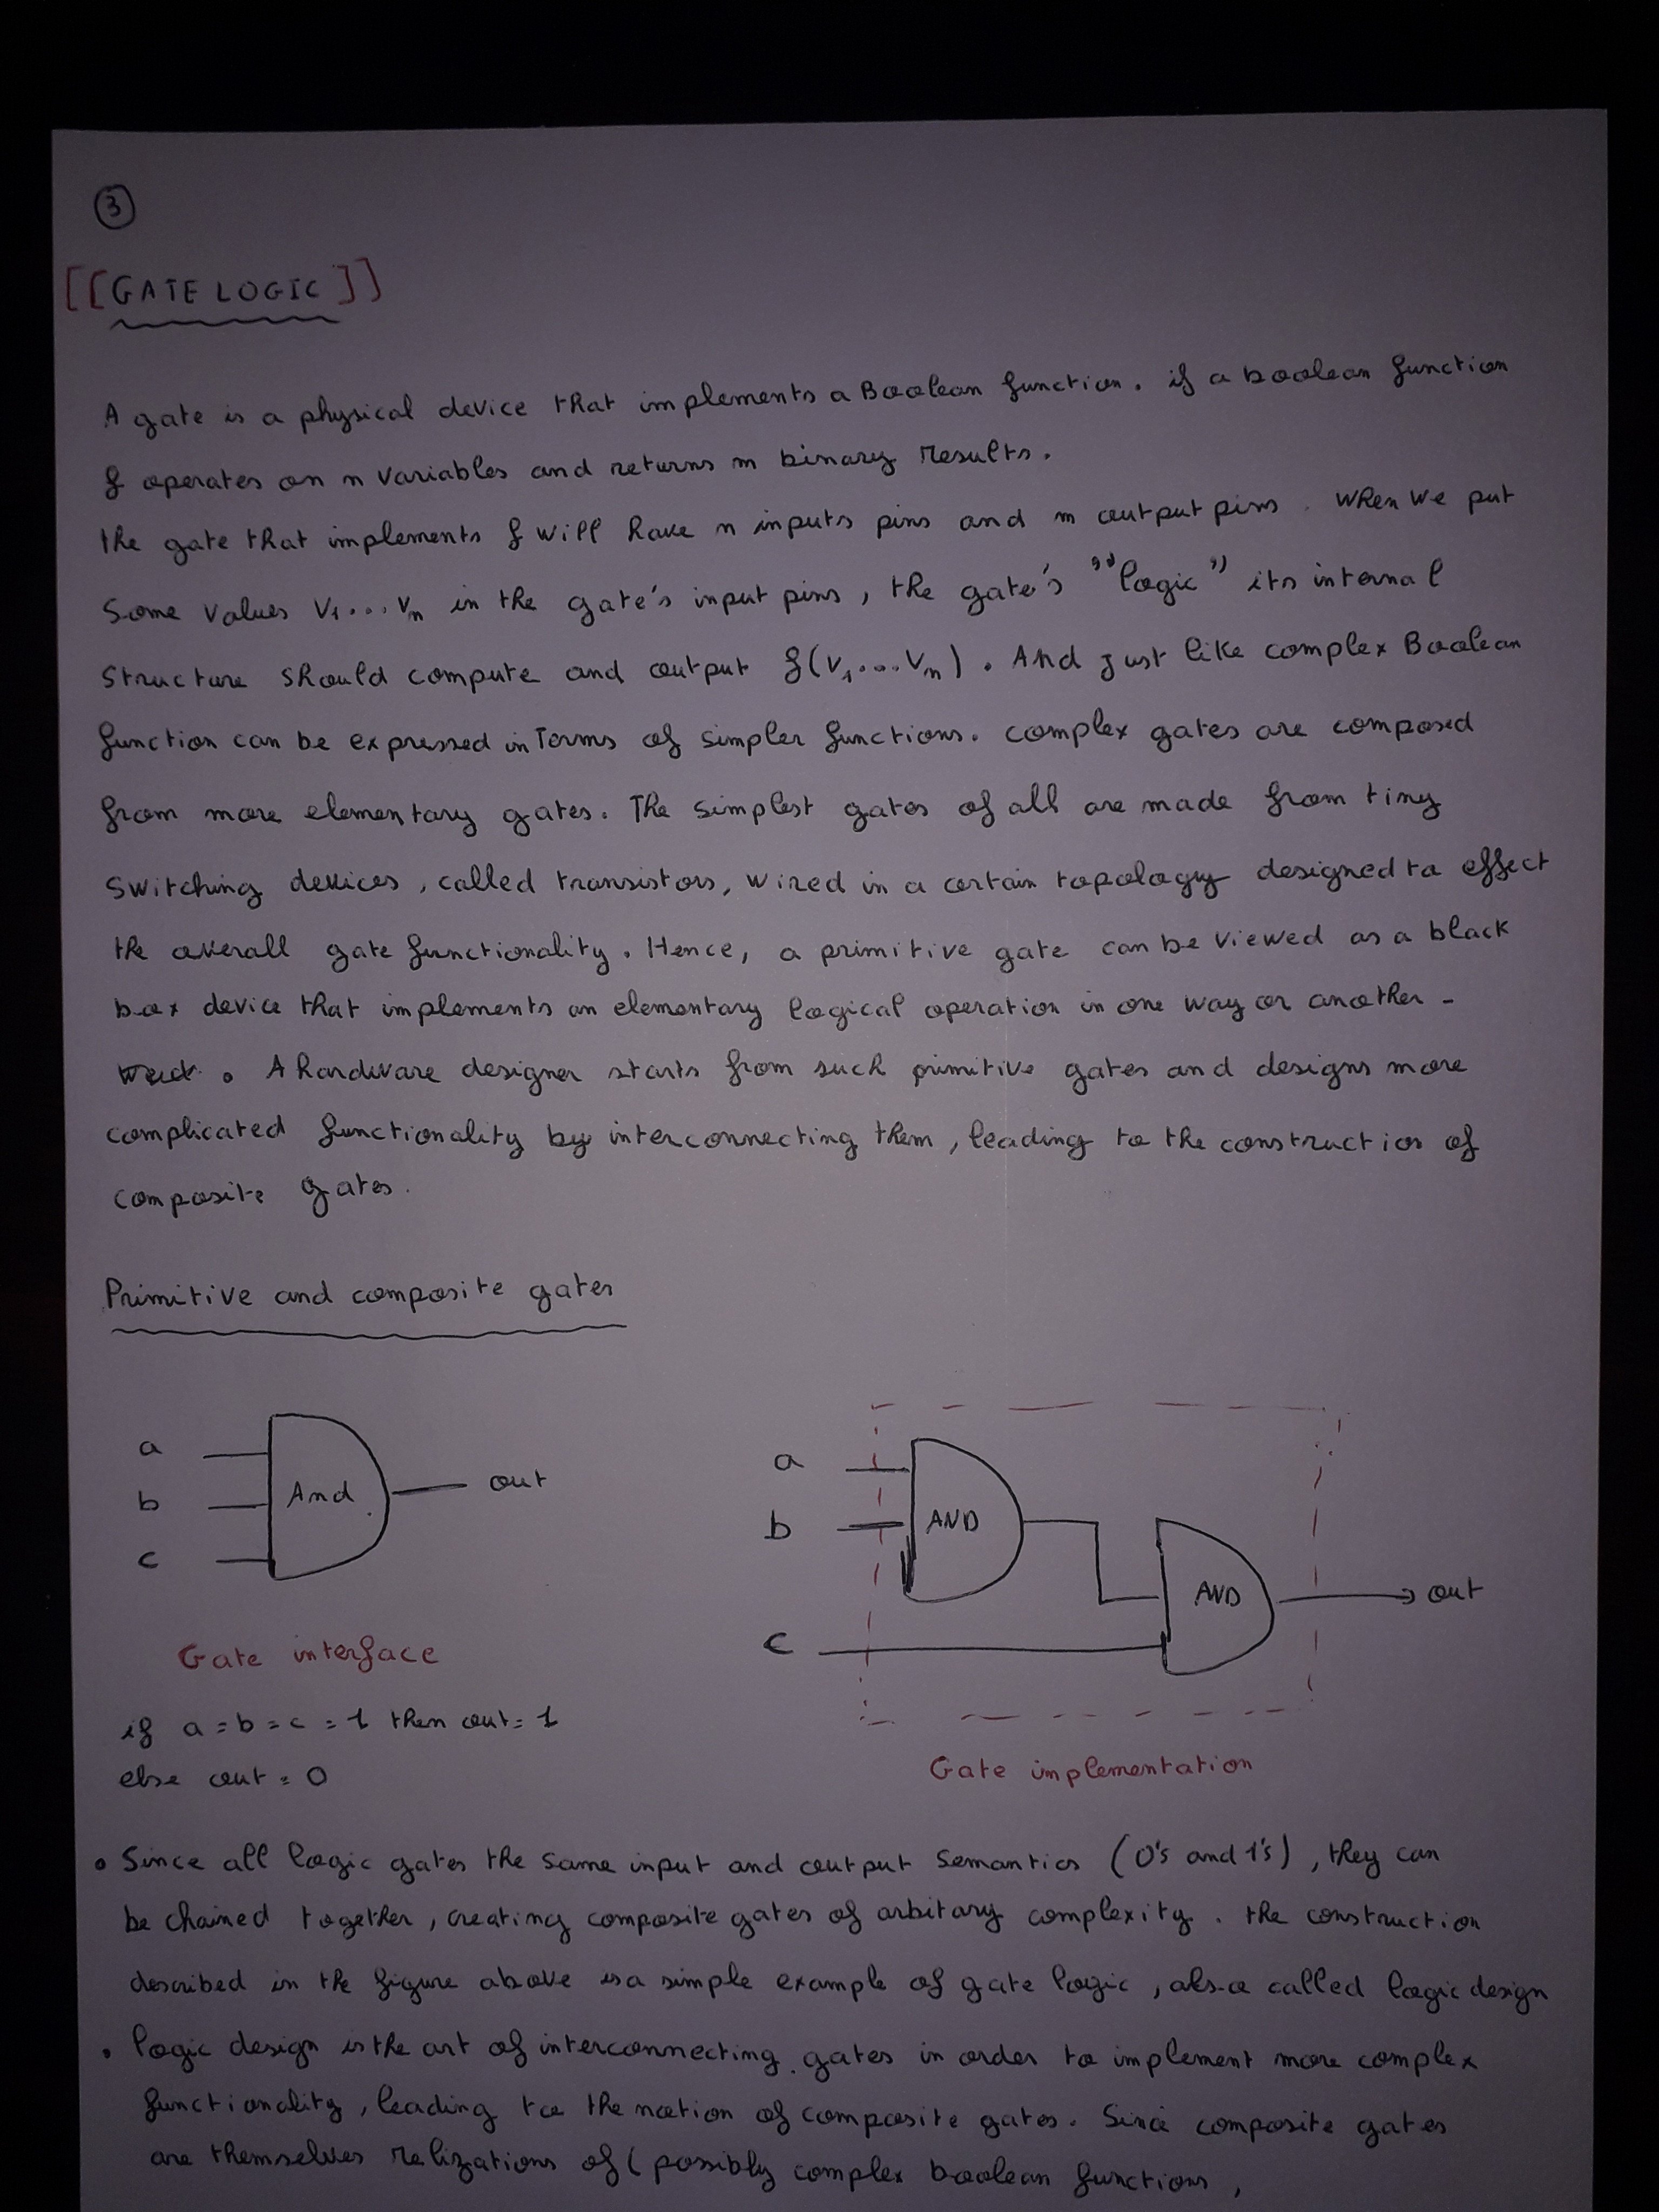 3
[[GATE LOGIC]]
A gate is a physical device that implements a Boolean function. if a boolean function
f operates on n variables and returns m binary results.
the gate that implements f will have n inputs pins and m output pins. When we put
some values v1...vn in the gate's input pins, the gate's ""logic" its internal
structure should compute and output f(v1...vn). And just like complex Boolean
function can be expressed in terms of simpler functions. complex gates are composed
from more elementary gates. The simplest gates of all are made from tiny
switching devices, called transistors, wired in a certain topology designed to effect
the overall gate functionality. Hence, a primitive gate can be viewed as a black
box device that implements an elementary logical operation in one way or another -
. A hardware designer starts from such primitive gates and designs more
complicated functionality by interconnecting them, leading to the construction of
composite gates.
Primitive and composite gates
a
b
c
And
out
Gate interface
if a = b = c = 1 then out = 1
else out = 0
a
b
c
AND
AND
out
Gate implementation
• Since all logic gates the same input and output semantics (0's and 1's), they can
be chained together, creating composite gates of arbitary complexity. the construction
described in the figure above is a simple example of gate logic, also called logic design
• logic design is the art of interconnecting gates in order to implement more complex
functionality, leading to the notion of composite gates. Since composite gates
are themselves realizations of (possibly complex boolean functions,